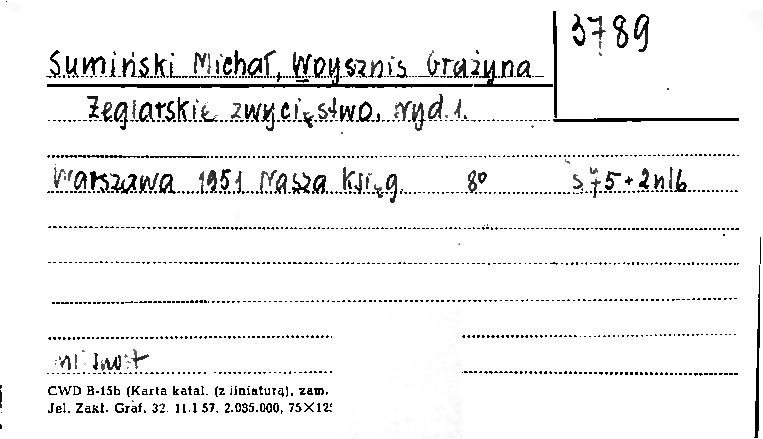 3789
Sumiński Michał, Woysznis Grażyna
Żeglarskie zwycięstwo. wyd. 1.
Warszawa 1951 Nasza Księg. 8° s 75 + 2 nlb
CWD B-15b (Karta katal. (z liniaturą), zam.
Jel. Zakł. Graf. 32. 11.I 57. 2.035.000, 75×125